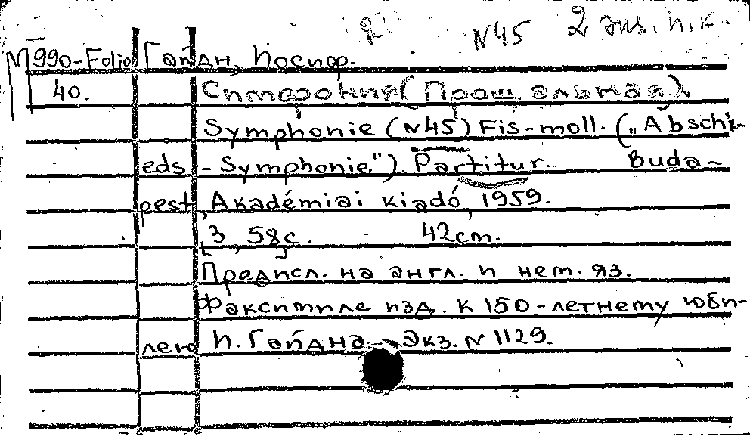 N45 2 экз. н.к.
М990-Folio Гайдн, Иосиф.
40. Симфония (Прощальная).
Symphonie (N45) Fis-moll. („Abschi-
eds-Symphonie"). Partitur. Buda-
pest, Akadémiai kiadó, 1959.
[3], 58с. 42cm.
Предисл. на англ. и нем. яз.
Факсимиле изд. к 150-летнему юби-
лею И. Гайдна. - Экз. N 1129.